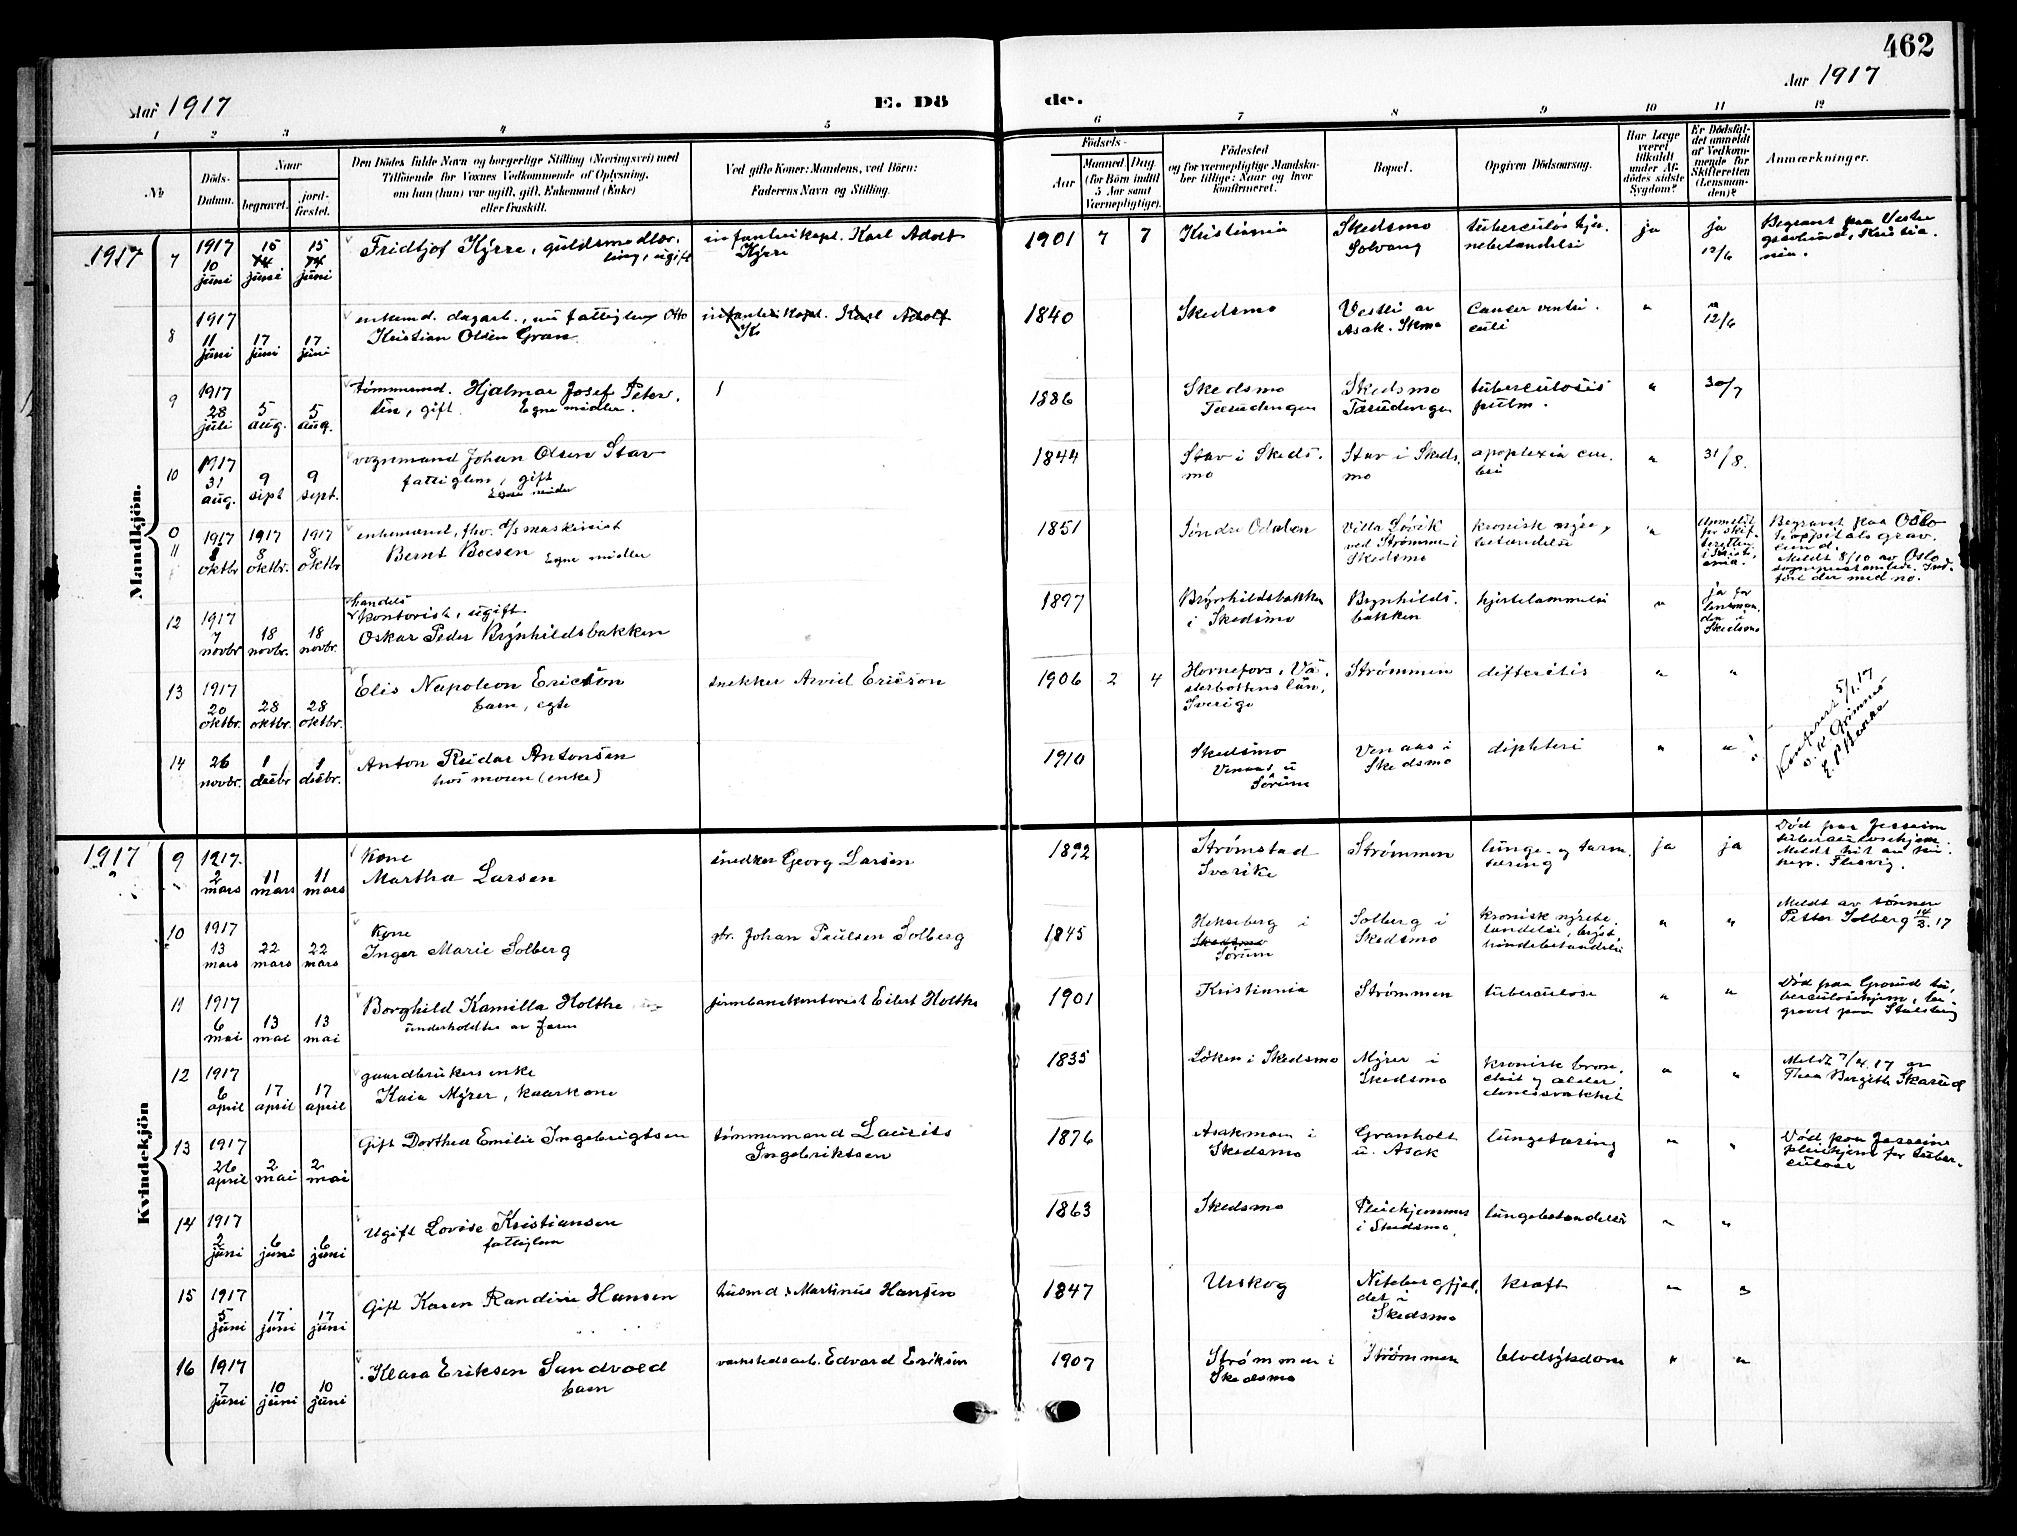 462
Aar 1917
E. Dö
de.
Aar 1917
1
2
3
4
5
6
7
8
9
10
11
12
No
Döds-
Datum.
Naar
begravet.
jord-
fæstet.
Den Dödes fulde Navn og borgerlige Stilling (Næringsvei) med
Tilföiende for Voxnes Vedkommende af Oplysning,
om han (hun) var ugift, gift, Enkemand (Enke)
eller fraskilt.
Ved gifte Koner: Mandens, ved Börn:
Faderens Navn og Stilling.
Födsels-
Aar
Maaned
Dag
(for Börn indtil
5 Aar samt
Værnepligtige).
Födested
og for værnepligtige Mandska-
ber tillige: Naar og hvor
konfirmeret.
Bopæl.
Opgiven Dödsaarsag.
Har Læge
været
tilkaldt
under Af-
dödes sidste
Sygdom?
Er Dödsfal-
det anmeldt
af Vedkom-
mende for
Skifteretten
(Lensman-
den)?
Anmærkninger.
Mandkjön.
1917
7
1917
10
juni
15
14
juni
15
14
juni
Fridtjof Kyrre, guldsmedlær-
ling, ugift
infanterikapt. Karl Adolf
Kyrre
1901
7
7
Kristiania
Skedsmo
Solvang
tuberculøs hjer-
nebetændelse
ja
ja
12/6
Begravet paa Vestre
gravlund, Kristia-
nia.
8
1917
11
juni
17
juni
17
juni
enkemd. dagarb., nu fattiglem Otto
Kristian Olsen Gran
infanterikapt. Karl Adolf
K
1840
Skedsmo
Vestli av
Asak. Skmo
Cancer ventri-
culi
"
"
12/6
9
1917
28
juli
5
aug.
5
aug.
tømmermd. Hjalmar Josef Peter-
sen, gift. Egne midler.
1886
Skedsmo
Tærudengen
Skedsmo
Tærudengen
tuberculosis
pulm.
"
30/7
10
1917
31
aug.
9
sept
9
sept.
vognmand Johan Olsen Stav
fattiglem, gift
Egne midler
1844
Stav i Skeds-
mo
Stav i Skeds-
mo
apoplexia cere-
bri
"
31/8.
0
11
1917
8
oktbr
1917
8
oktbr.
1917
8
oktbr
enkemand, fhv. d/s maskinist
Bernt Boesen Egne midler
1851
Søndre Odalen
Villa Løvik
ved Strømmen i
Skedsmo
kronisk nyre-
betændelse
"
Anmeldt
for skif-
teretten
i Kristi-
ania.
Begravet paa Oslo
hospitals grav-
lund.
Meldt 8/10 av Oslo
sogneprestembede. Ind-
ført der med no.
12
1917
7
novbr
18
novbr.
18
novbr.
handels
kontorist, ugift
Oskar Peder Brynhildsbakken
1897
Brynhildsbakken
i Skedsmo
Brynhilds-
bakken
hjertelammelse
"
ja for
lensman-
den i
Skedsmo
13
1917
20
oktbr.
28
oktbr.
28
oktbr.
Elis Napoleon Ericson
barn, egte
snekker Arvid Ericson
1906
2
4
Hornefors, Vä-
sterbottens län,
Sverige
Strømmen
difteritis
"
"
14
26
novbr.
1
decbr
1
decbr.
Anton Reidar Antonsen
hos moren (enke)
1910
Skedsmo
Venaas u
Sørum
Venaas i
Skedsmo
diphteri
"
"
Konferert 5/1.17
Kvindekjön
1917
9
1917.
2
mars
11
mars
11
mars
Kone
Martha Larsen
snedker Georg Larsen
1892
Strømstad
Sverike
Strømmen
lunge- og tarm-
tæring
ja
ja
Død paa Jessheim
tuberculosehjem.
Meldt hit av
10
1917
13
mars
22
mars
22
mars
Kone
Inger Marie Solberg
gbr. Johan Paulsen Solberg
1845
Hekseberg i
Skedsmo
Sørum
Solberg i
Skedsmo
kronisk nyrebe-
tændelse, bryst-
hindebetændelse
"
"
Meldt av sønnen
Petter Solberg 14/3.17
11
1917
6
mai
13
mai
13
mai
Borghild Kamilla Holthe
underholdtes av faren
jernbanekontorist Eilert Holthe
1901
Kristiania
Strømmen
tuberculose
"
"
Død paa Grorud tu-
berculosehjem, be-
gravet paa Stalsberg
12
1917
6
april
17
april
17
april
gaardbrukers enke
Kaia Myrer, kaarkone
1835
Løken i Skedsmo
Myrer i
Skedsmo
kronisk bron-
chit og alder-
domssvakhet
"
"
Meldt 7/4.17 av
Thea Bergith Skarud
13
1917
26
april
2
mai
2
mai
Gift Dorthea Emilie Ingebrigtsen
tømmermand Laurits
Ingebriktsen
1876
Asakmoen i
Skedsmo
Granholt
u. Asak
lungetæring
"
"
Død paa Jessheim
pleiehjem for tuber-
culose
14
1917
2
juni
6
juni
6
juni
Ugift Lovise Kristiansen
fattiglem
1863
Skedsmo
Pleiehjemmet
i Skedsmo.
lungebetændelse
"
"
15
1917
5
juni
17
juni
17
juni
Gift Karen Randine Hansen
husmd. Martinus Hansen
1847
Urskog
Nitebergfjel-
det i
Skedsmo
kræft
"
"
16
1917
7
juni
10
juni
10
juni
Klara Eriksen Sandvold
barn
verkstedsarb. Edvard Eriksen
1907
Strømmen i
Skedsmo
Strømmen
blodsykdom
"
"